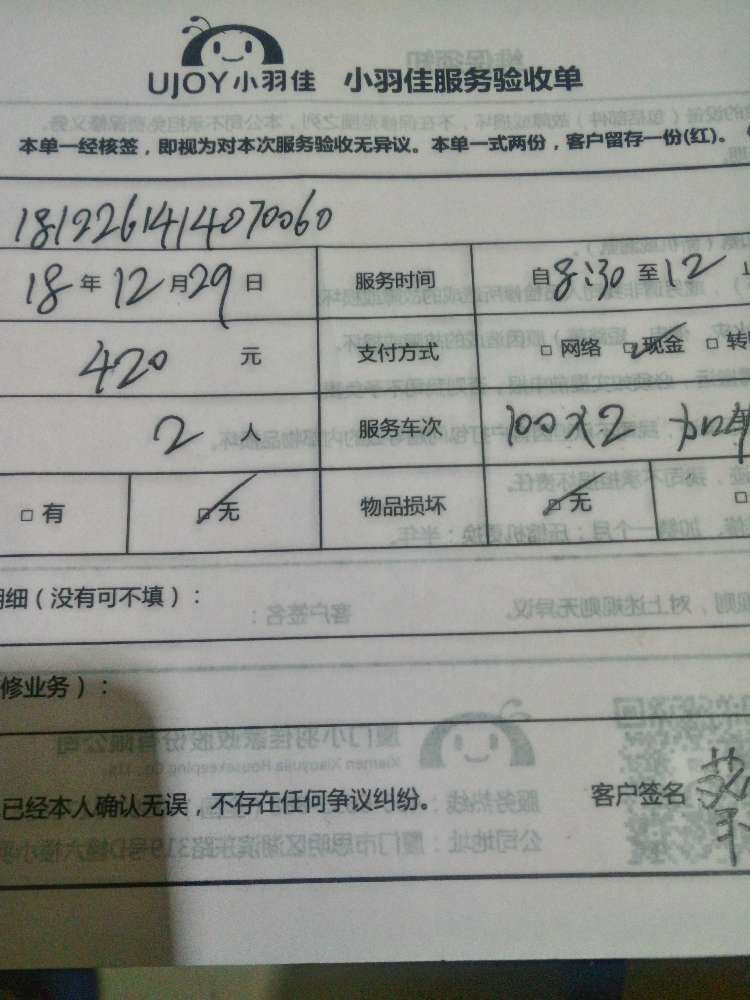 UJOY小羽佳 小羽佳服务验收单
本单一经核签，即视为对本次服务验收无异议。本单一式两份，客户留存一份(红)。
1812261414070060
18年12月29日 服务时间 自8:30至12
420元 支付方式 □网络 □现金 □转
2人 服务车次 100×2
□有 □无 物品损坏 □无 □
明细（没有可不填）：
修业务）：
已经本人确认无误，不存在任何争议纠纷。 客户签名